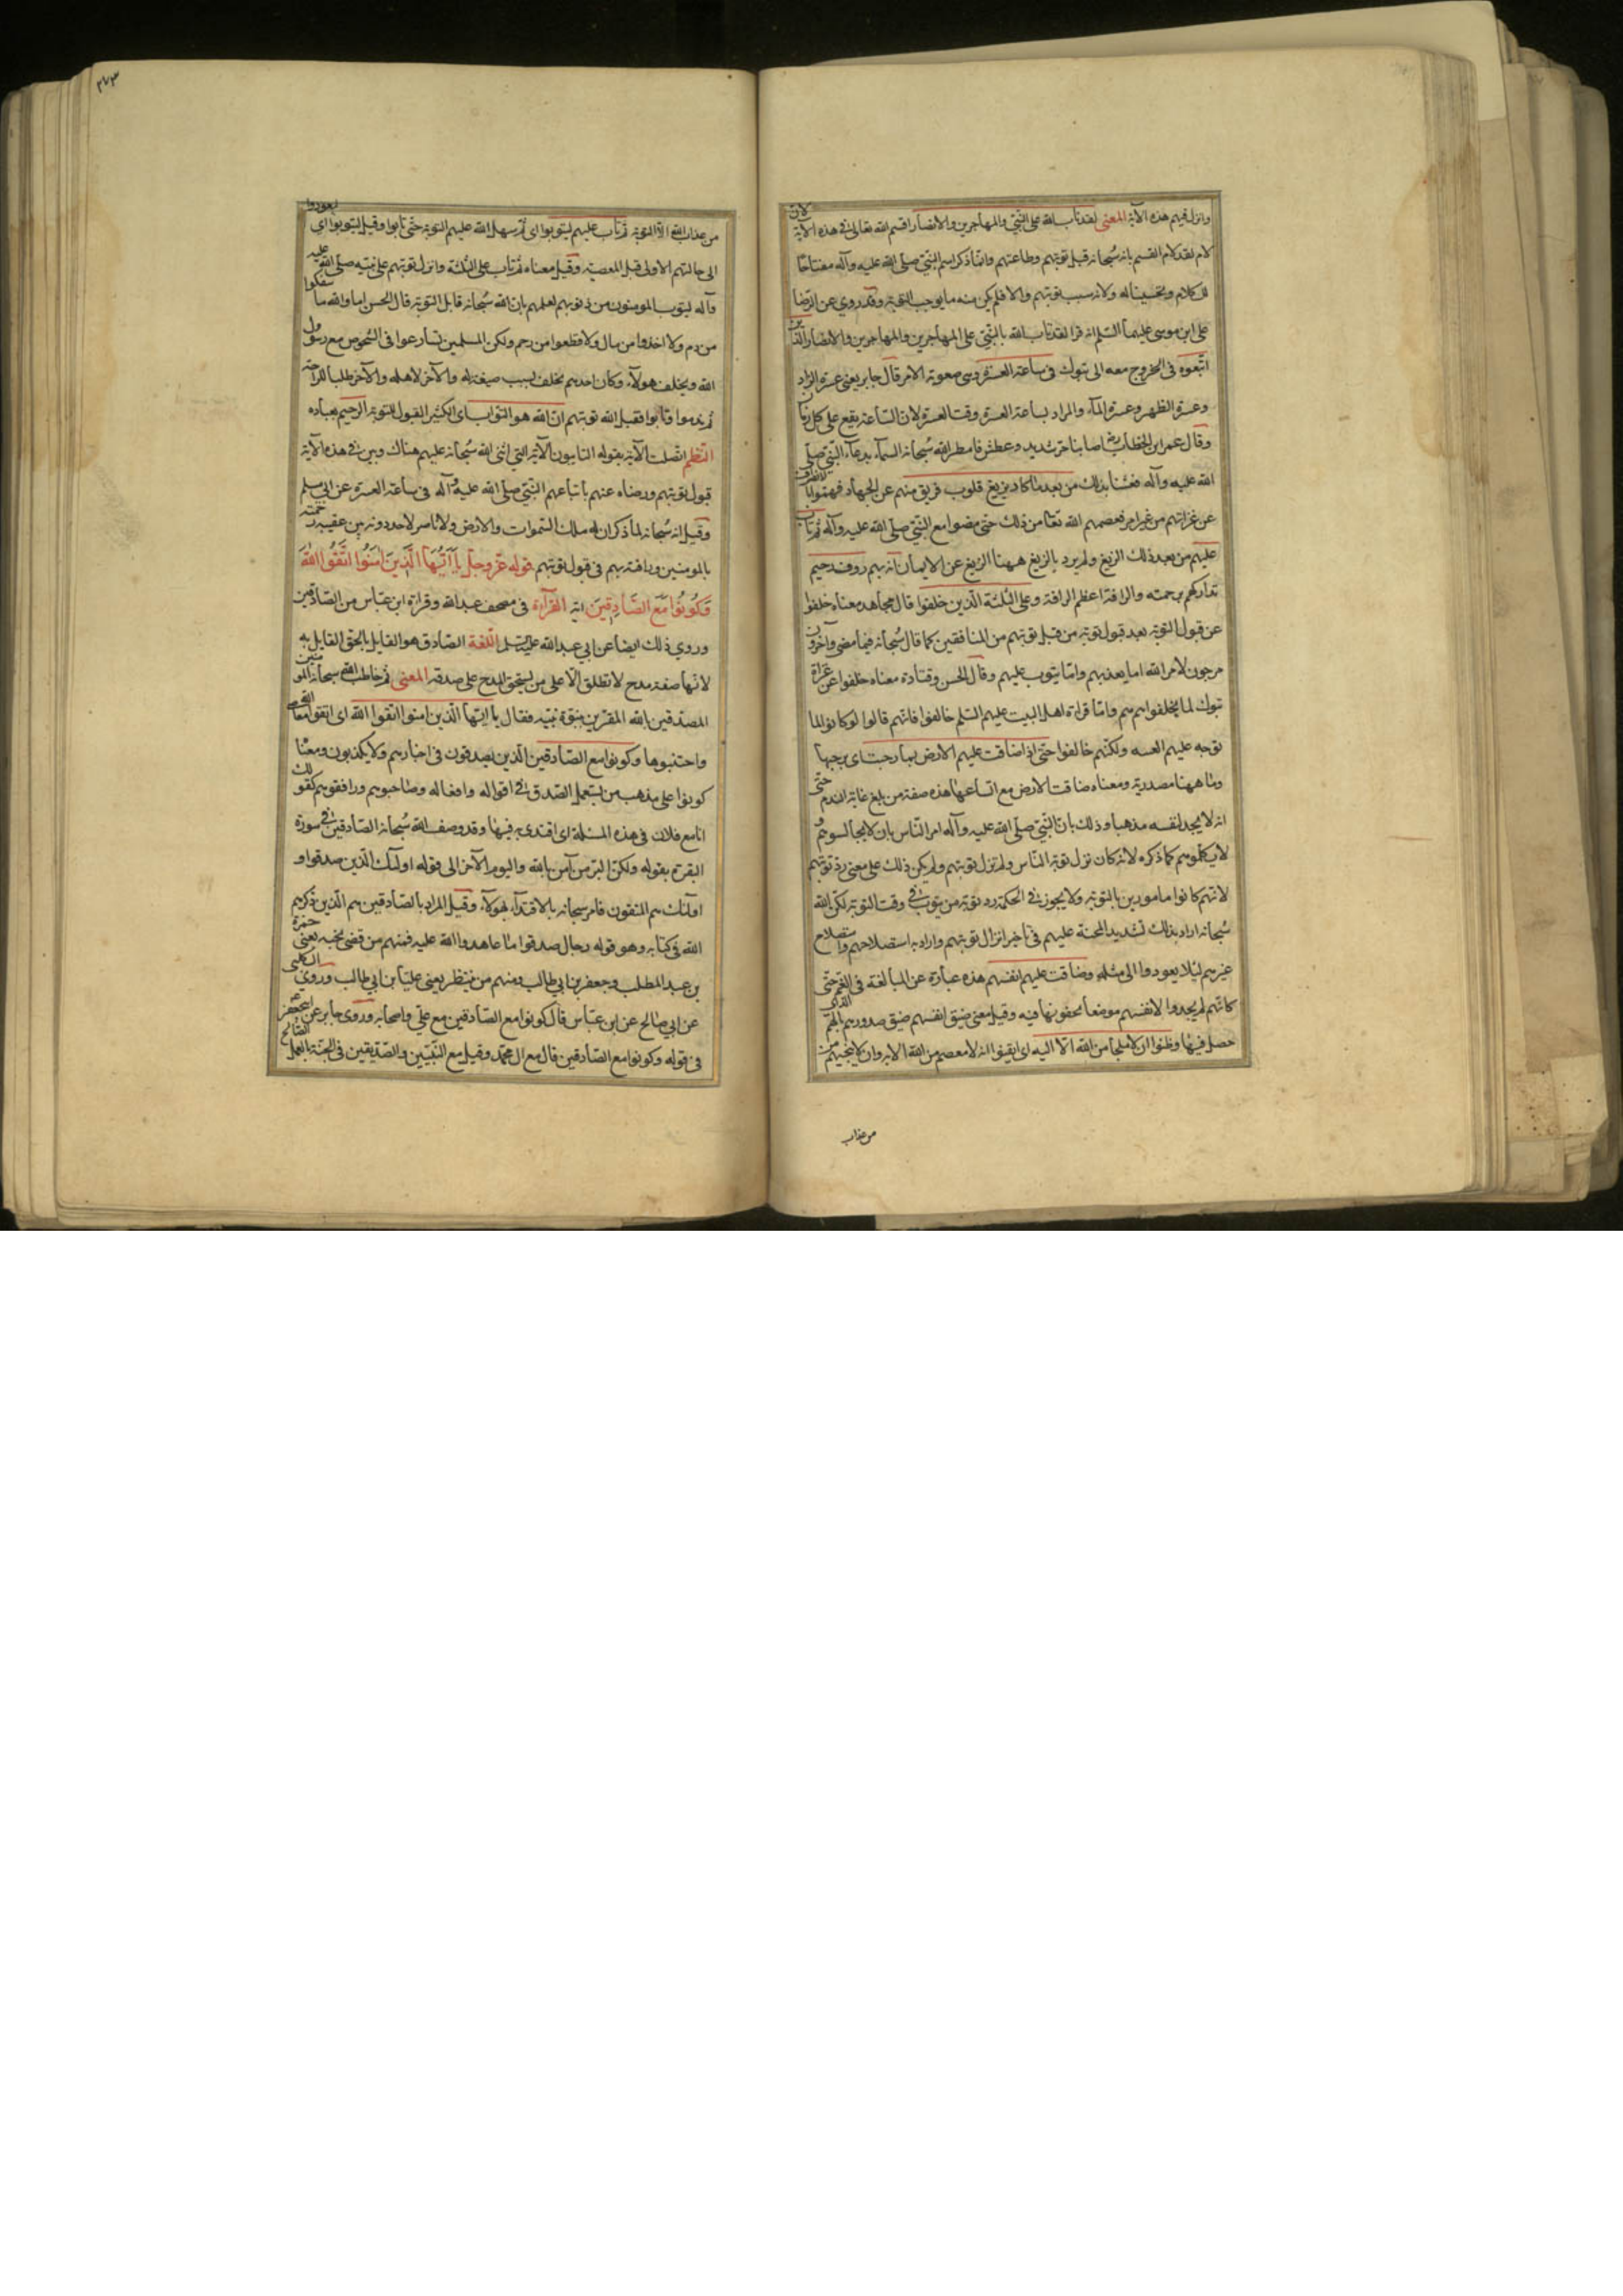 وانزل فيهم هذه الآية المعنى لقد تاب الله على النّبيّ والمهاجرين والانصار اقسم الله تعالى فى هذه الآية لان
لام لقد لام القسم بانه سُبحانه قبل توبتهم وطاعتهم وانّما ذكر اسم النبيّ صلى الله عليه وآله مفتاحًا
للكلام وتحسينا له ولانه سبب توبتهم والا فلم يكن منه ما يوجب التوبة وقد روي عن الرّضا
على ابن موسى عليهما السّلم انه قرا لقد تاب الله بالنّبيّ على المهاجرين والمهاجرين والانصار الّذين
اتّبعوه فى الخروج معه الى تبوك فى ساعة العسرة وهى صعوبة الامر قال جابر يعنى عسرة الزاد
وعسرة الظهر وعسرة المآء والمراد بساعة العسرة وقت العسرة لان السّاعة يقع على كل زمان
وقال عمر ابن الخطاب رض اصابنا حرّ شديد وعطش فامطر الله سُبحانه السمآء بدعآء النّبيّ صلى
الله عليه وآله فعشنا بذلك من بعد ما كاد يزيغ قلوب فريق منهم عن الجهاد فهمّوا بالانصراف
عن غزاتهم من غير امر فعصمهم الله تعالى من ذلك حتى مضوا مع النّبيّ صلى الله عليه وآله ثم تاب
عليهم من بعد ذلك الزيغ ولم يرد بالزيغ ههنا الزيغ عن الايمان انه بهم روف رحيم
تداركهم برحمته والرافة اعظم الرافة وعلى الثلثة الّذين خلفوا قال مجاهد معناه خلفوا
عن قبول التوبة بعد قبول توبة من قبل توبتهم من المنافقين كما قال سُبحانه فيما مضى وآخرون
مرجون لامر الله اما يعذبهم وامّا يتوب عليهم وقال الحسن وقتادة معناه خلفوا عن غزاة
تبوك لما تخلفوا هم وامّا قراة اهل البيت عليهم السّلم خالفوا فانّهم قالوا لو كانوا لما
توجه عليهم العتب ولكنّهم خالفوا حتّى اذا ضاقت عليهم الارض بما رحبت اى برحبها
وما ههنا مصدرية ومعناه ضاقت الارض مع اتّساعها هذه صفة من بلغ غاية الندم حتى
انه لا يجد لنفسه مذهبا وذلك بان النّبيّ صلّى الله عليه وآله امر النّاس بان لا يجالسوهم و
لا يكلّموهم كما ذكره لانه كان نزل توبة الناس ولم تنزل توبتهم ولم يكن ذلك على معنى ردّ توبتهم
لانّهم كانوا مامورين بالتوبة ولا يجوز فى الحكمة رد توبة من يتوب فى وقت التوبة لكن الله
سُبحانه اراد بذلك تشديد المحنة عليهم فى تاخير انزال توبتهم واراد به استصلاحهم واستصلاح
غيرهم ليلا يعودوا الى مثله وضاقت عليهم انفسهم هذه عبارة عن المبالغة فى الغم حتى
كانّهم لم يجدوا لانفسهم موضعاً يخفونها فيه وقيل معنى ضيق انفسهم ضيق صدورهم بالهمّ الذى
حصل فيها وظنوا ان لا ملجأ من الله الّا اليه اى ايقنوا انه لا معصم من الله الا به وان لا ينجيهم من
من عذاب
٢٧٣
من عذاب الله الاّ التوبة ثم تاب عليهم ليتوبوا اى ثم سهل الله عليهم التوبة حتى تابوا وقيل ليتوبوا اى ليعودوا
الى حالتهم الاولى قبل المعصية وقيل معناه ثم تاب على الثّلثة وانزل توبتهم على نبيه صلى الله عليه
وآله ليتوب المومنون من ذنوبهم لعلمهم بان الله سُبحانه قابل التوبة قال الحسن اما والله ما سفكوا
من دم ولا اخذوا من مال ولا قطعوا من رحم ولكن المسلمين تسارعوا فى الشخوص مع رسول
الله وتخلف هولآء وكان احدهم تخلف بسبب ضيعة له والآخر لاهله والآخر طلبا للراحة
ثم ندموا وتابوا فقبل الله توبتهم انّ الله هو التوّاب اى الكثير القبول للتوبة الرحيم بعباده
النّظم اتّصلت الآية بقوله التايبون الآية التى اثنى الله سُبحانه عليهم هناك وبين فى هذه الآية
قبول توبتهم ورضاه عنهم باتباعهم النّبيّ صلى الله عليه وآله فى ساعة العسرة عن ابى مسلم
وقيل انه سُبحانه لما ذكر ان له ملك السّموات والارض ولا ناصر لاحد دونه بين عقيبه رحمته
بالمومنين ورافته بهم فى قبول توبتهم قوله عزّ وجلّ يَا أَيُّهَا الَّذِينَ آمَنُوا اتَّقُوا اللهَ
وَكُونُوا مَعَ الصَّادِقِينَ آية القرآءة فى مصحف عبد الله وقراة ابن عبّاس من الصّادقين
وروي ذلك ايضا عن ابى عبد الله عليه السّلم اللّغة الصّادق هو القايل بالحق القايل به
لانّها صفة مدح لا تطلق الّا على من يستحق المدح على صدقه المعنى ثم خاطب الله سبحانه المومنين
المصدّقين بالله المقرّين بنبوّة نبيّه فقال يا ايّها الّذين امنوا اتّقوا الله اى اتقوا معاصى الله
واجتنبوها وكونوا مع الصّادقين الّذين يصدقون فى اخبارهم ولا يكذبون ومعناه
كونوا على مذهب من يستعمل الصّدق فى اقواله وافعاله وصاحبوهم ورافقوهم كقولك
انا مع فلان فى هذه المسئلة اى اقتدى به فيها وقد وصف الله سُبحانه الصّادقين فى سورة
البقرة بقوله ولكنّ البرّ من آمن بالله واليوم الآخر الى قوله اولئك الّذين صدقوا و
اولئك هم المتقون فامر سبحانه بالاقتدآء بهولآء وقيل المراد بالصّادقين هم الّذين ذكرهم
الله فى كتابه وهو قوله رجال صدقوا ما عاهدوا الله عليه فمنهم من قضى نحبه يعنى حمزة
بن عبد المطلب وجعفر بن ابى طالب ومنهم من ينتظر يعنى عليّا بن ابى طالب وروي الكلبى
عن ابى صالح عن ابن عبّاس قال كونوا مع الصّادقين مع علىّ واصحابه وروى جابر عن ابى جعفر ع
فى قوله وكونوا مع الصّادقين قال مع ال محمّد وقيل مع النّبيّين والصّدّيقين فى الجنّة بالعمل الصّالح